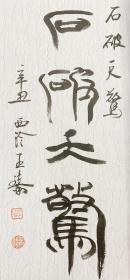 石破天驚
石破天驚
辛丑 西泠王臻